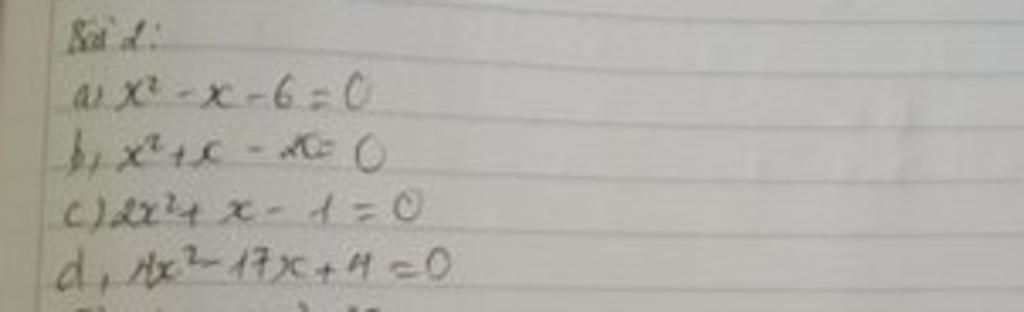 Bài 1:
a, x² - x - 6 = 0
b, x² + x - = 0
c) 2x² + x - 1 = 0
d, 4x² - 17x + 4 = 0